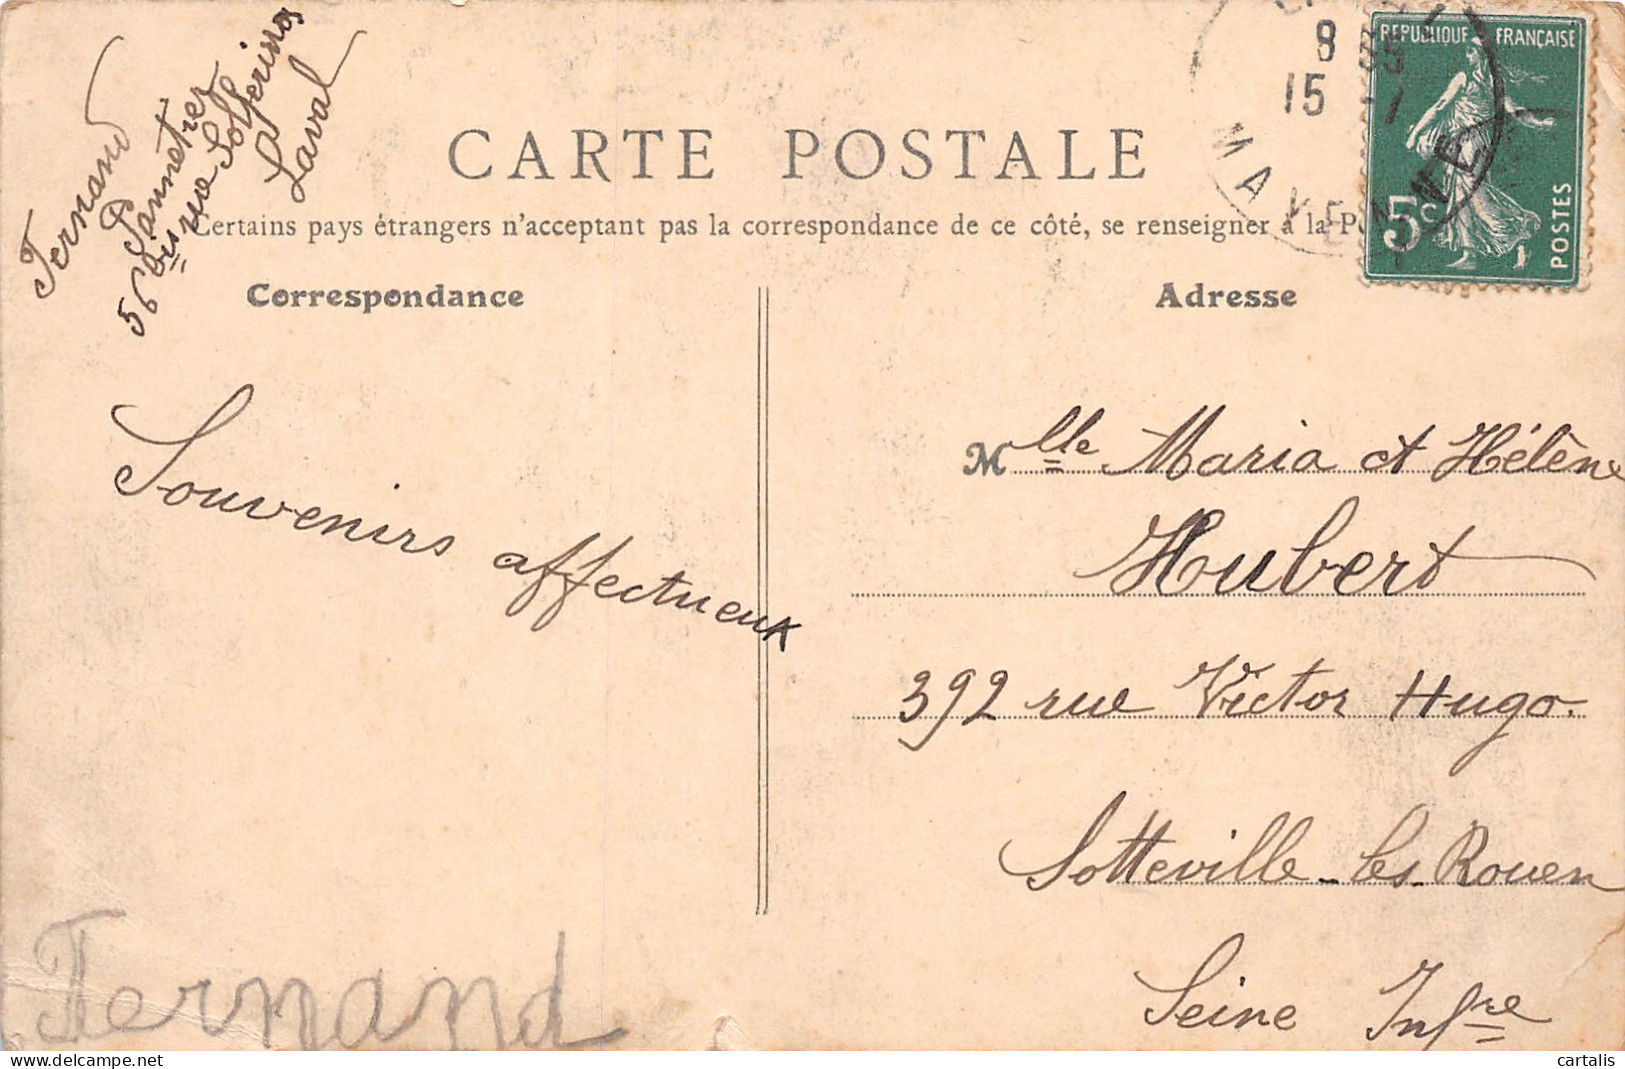 Fernand
Pannetier
56 bis rue Solferino
Laval
CARTE POSTALE
Certains pays étrangers n'acceptant pas la correspondance de ce côté, se renseigner à la P
Correspondance
Adresse
8 35
15 -1
MAYENNE
REPUBLIQUE FRANÇAISE
5c
POSTES
Souvenirs affectueux
Mlle Maria et Hélène
Hubert
392 rue Victor Hugo.
Sotteville-les-Rouen
Seine Infre
Fernand
cartalis
delcampe.net